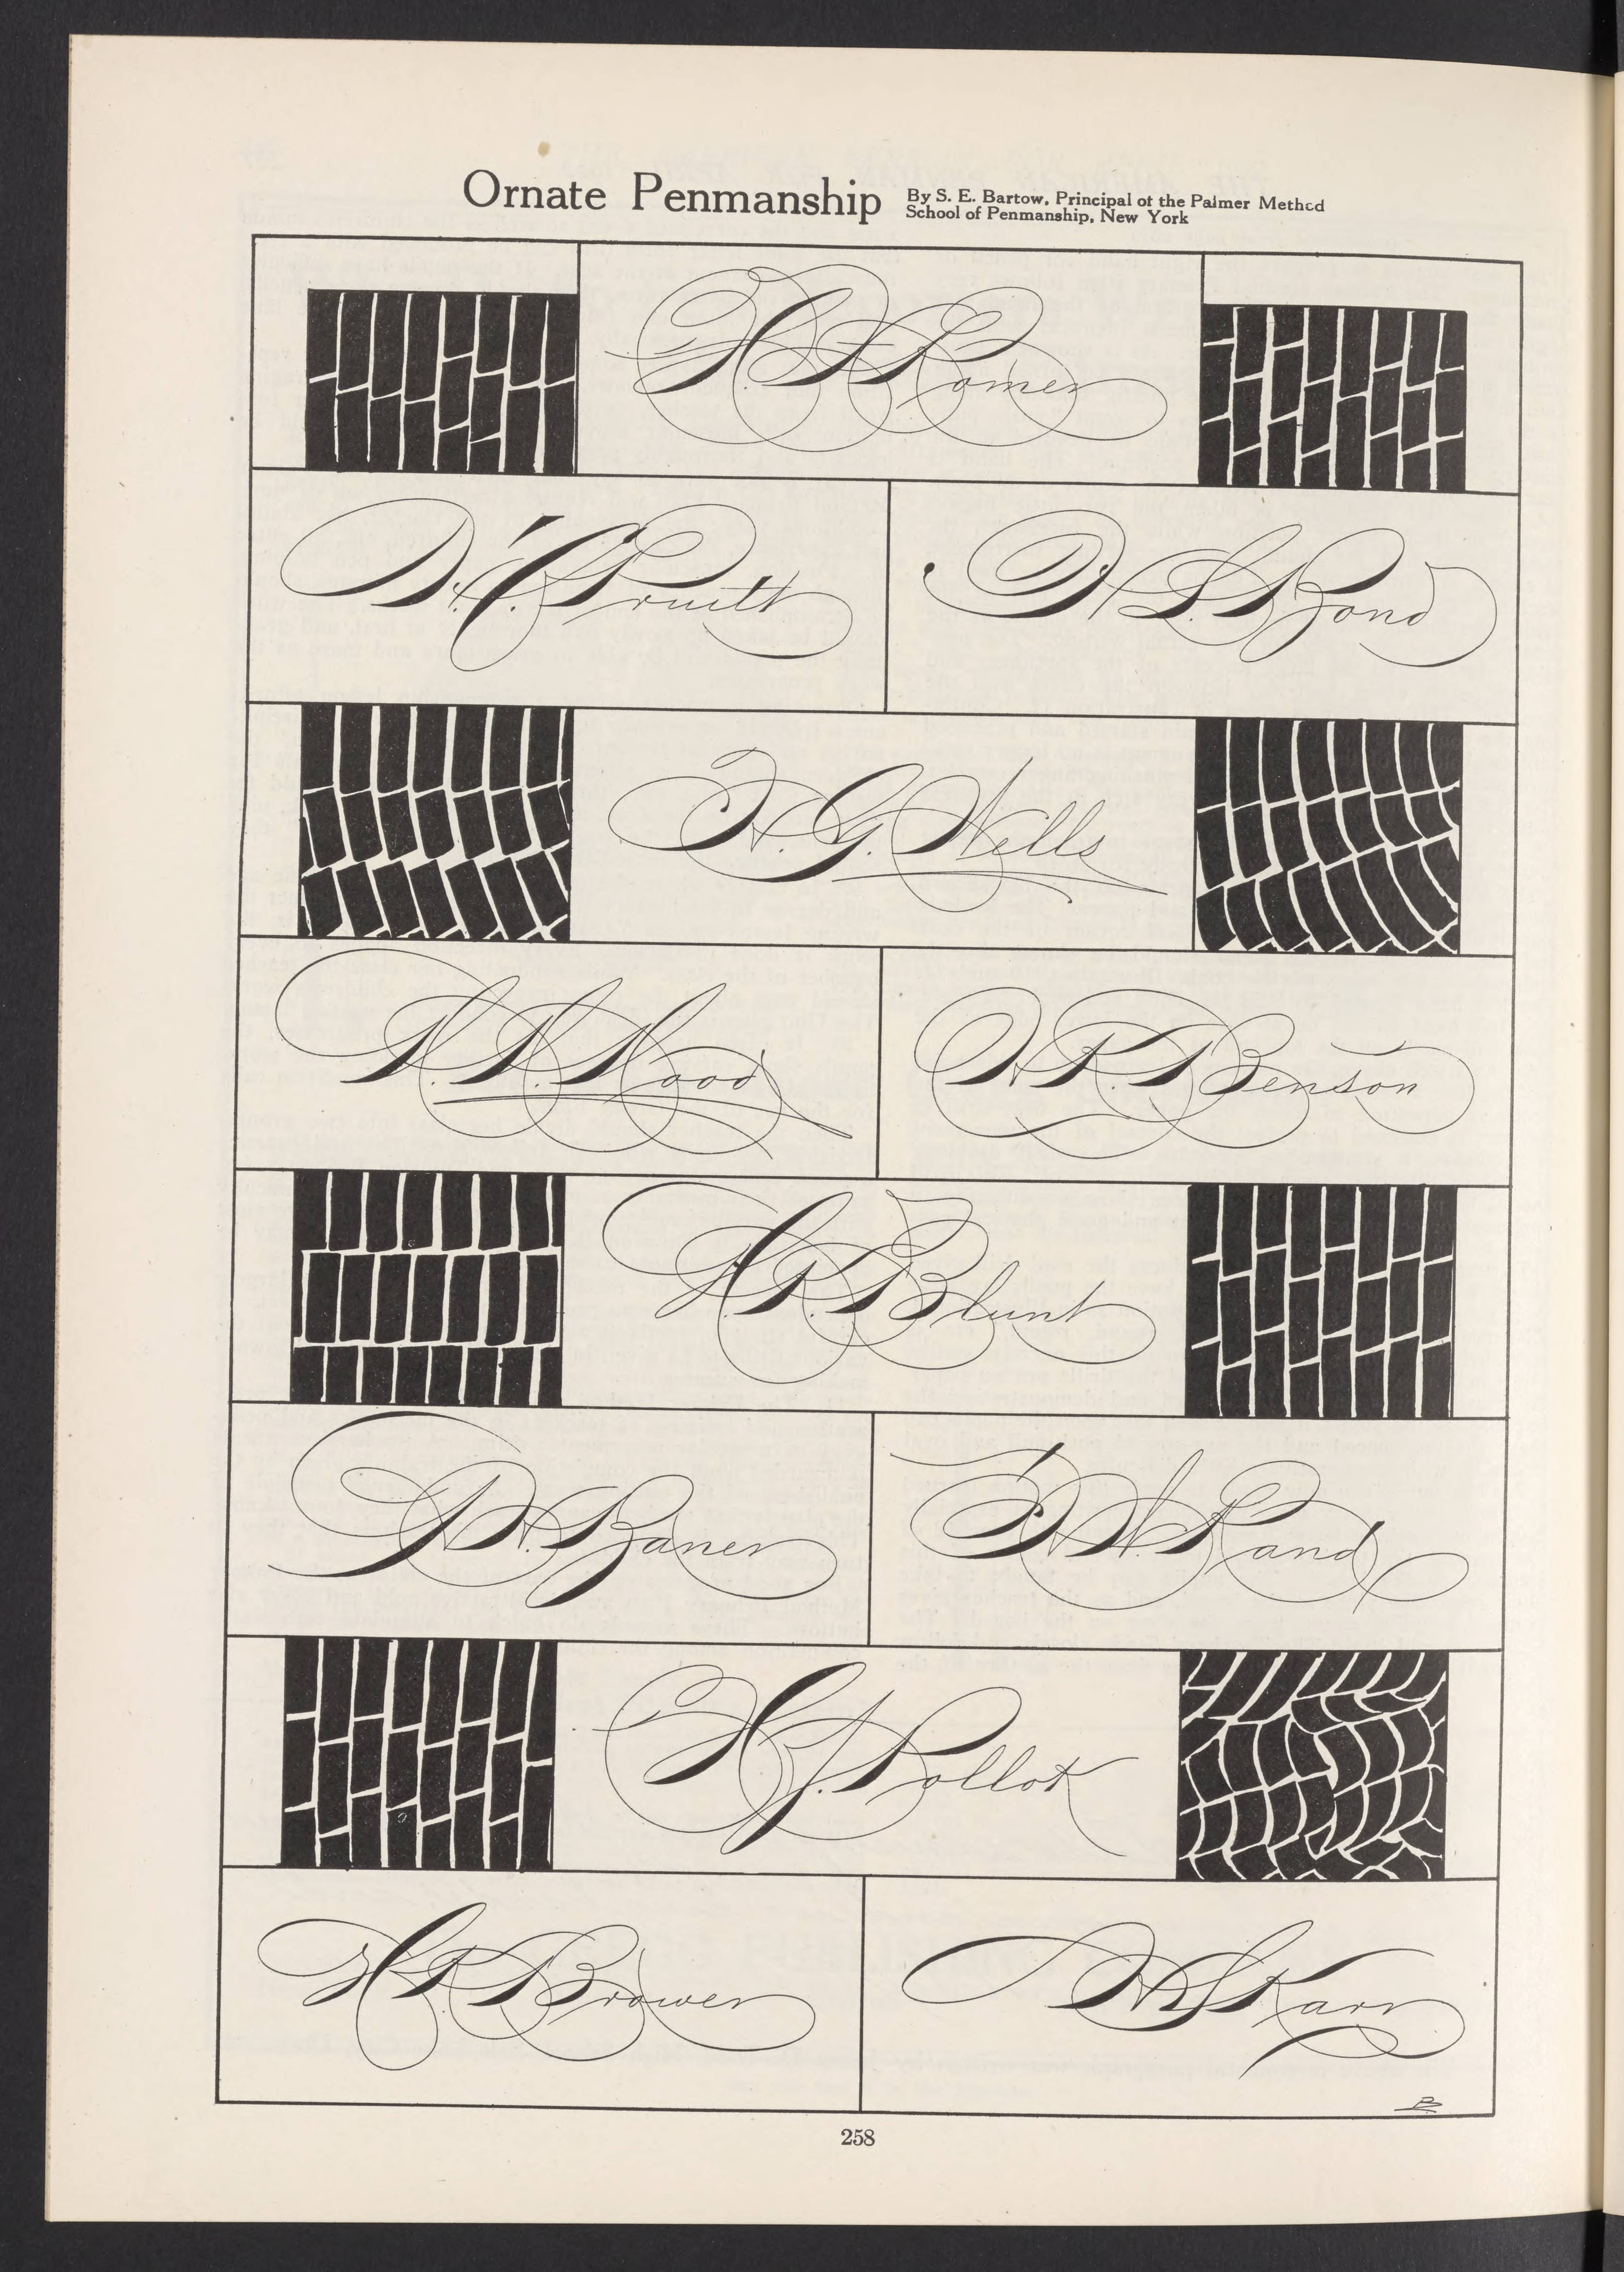 Ornate Penmanship
By S. E. Bartow, Principal of the Palmer Method
School of Penmanship, New York
Romer
D. C. Pruitt
Bond
G. Wells
Wood
R. Benson
H. P. Blunt
Zaner
Rand
H. J. Pollok
H. P. Brower
Karr
B
258